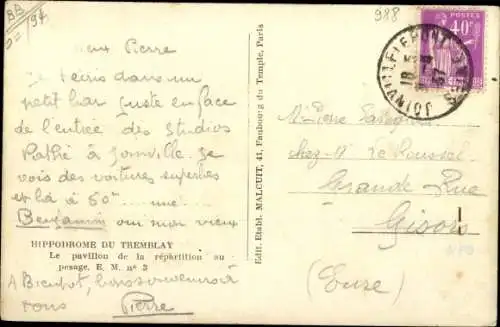 BB
194
988
POSTES
40c
JOINVILLE LE PONT
mon Pierre
Je t'écris dans un
petit bar juste en face
de l'entrée des Studios
Pathé à Joinville. Je
vois des voitures superbes
et là à 50m une
Benjamin oui mon vieux
HIPPODROME DU TREMBLAY
Le pavillon de la répartition au
pesage. E. M. nº 3
A Bientot, bons souvenirs à
tous Pierre
Edit. Etabl. MALCUIT, 41, Faubourg du Temple, Paris
Mr Pierre
chez Mr Le Roussel
Grande Rue
Gisors
(Eure)